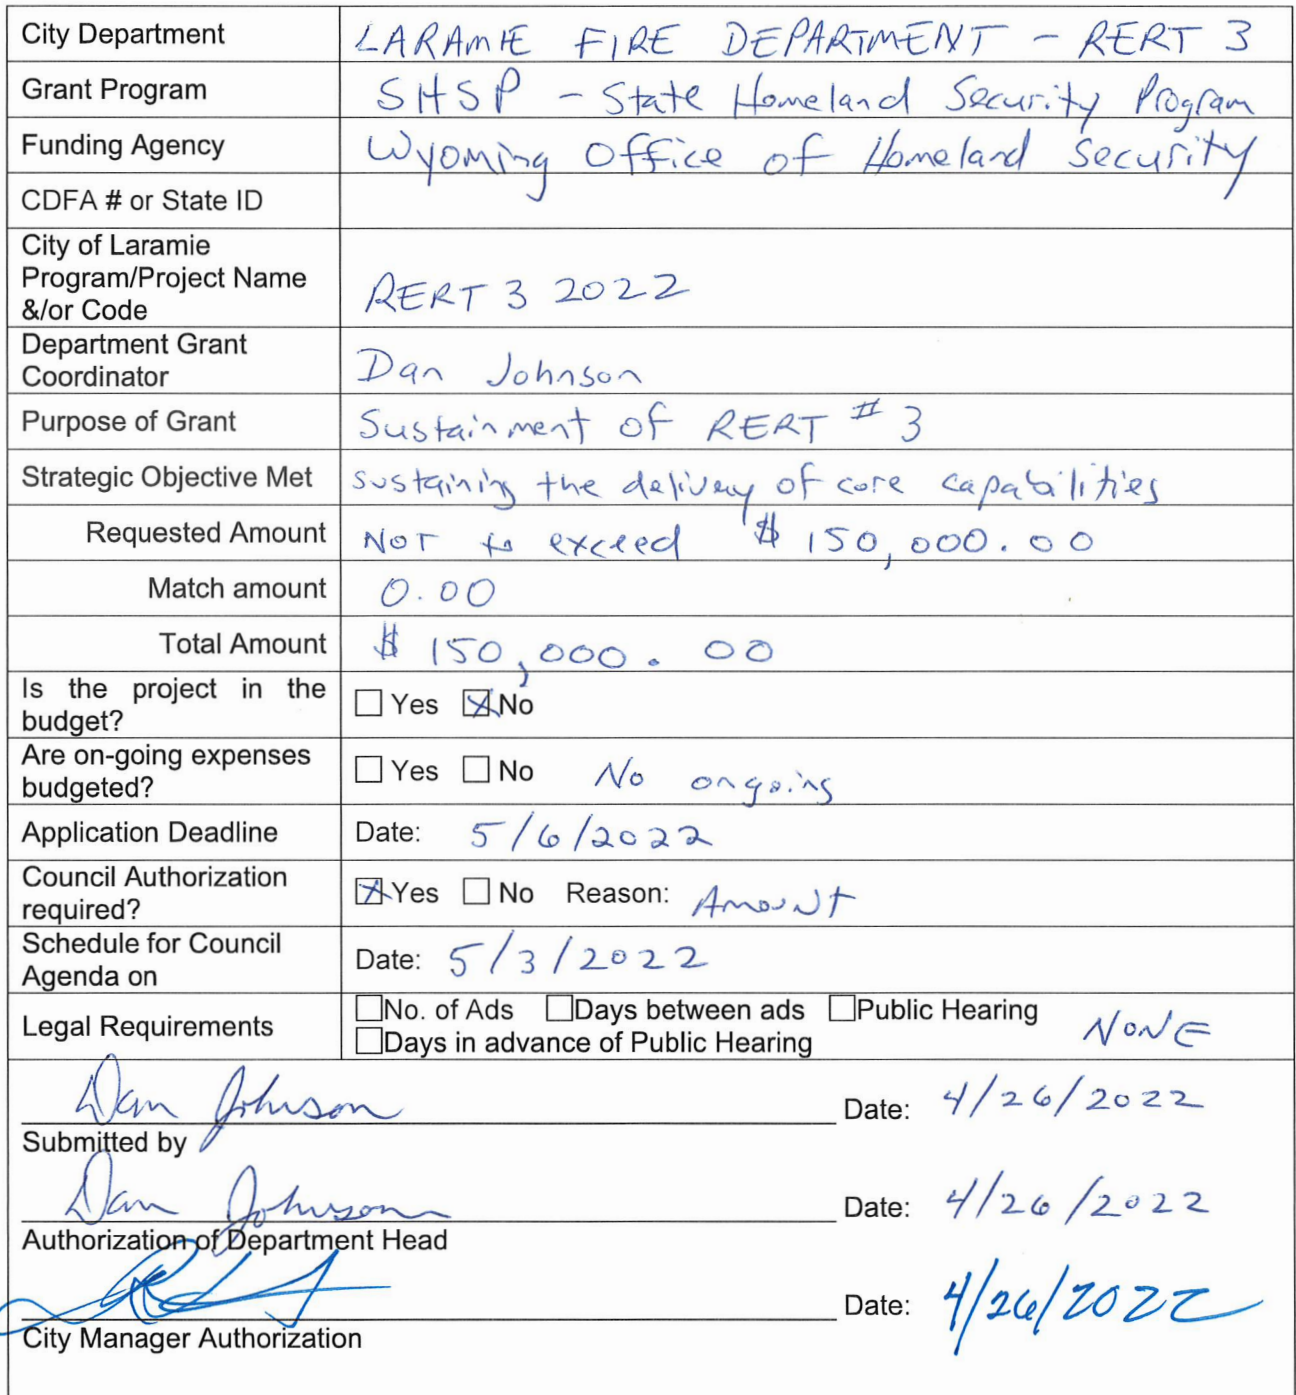 City Department LARAMIE FIRE DEPARTMENT - RERT 3
Grant Program SHSP - State Homeland Security Program
Funding Agency Wyoming Office of Homeland Security
CDFA # or State ID
City of Laramie
Program/Project Name
&/or Code
RERT 3 2022
Department Grant
Coordinator
Dan Johnson
Purpose of Grant Sustainment of RERT # 3
Strategic Objective Met sustaining the delivery of core capabilities
Requested Amount NOT to exceed $ 150,000.00
Match amount 0.00
Total Amount $ 150,000.00
Is the project in the
budget?
☐ Yes ☒ No
Are on-going expenses
budgeted?
☐ Yes ☐ No No ongoing
Application Deadline Date: 5/6/2022
Council Authorization
required?
☒ Yes ☐ No Reason: Amount
Schedule for Council
Agenda on
Date: 5/3/2022
Legal Requirements
☐ No. of Ads ☐ Days between ads ☐ Public Hearing
☐ Days in advance of Public Hearing
NONE
Dan Johnson Date: 4/26/2022
Submitted by
Dan Johnson Date: 4/26/2022
Authorization of Department Head
Date: 4/26/2022
City Manager Authorization